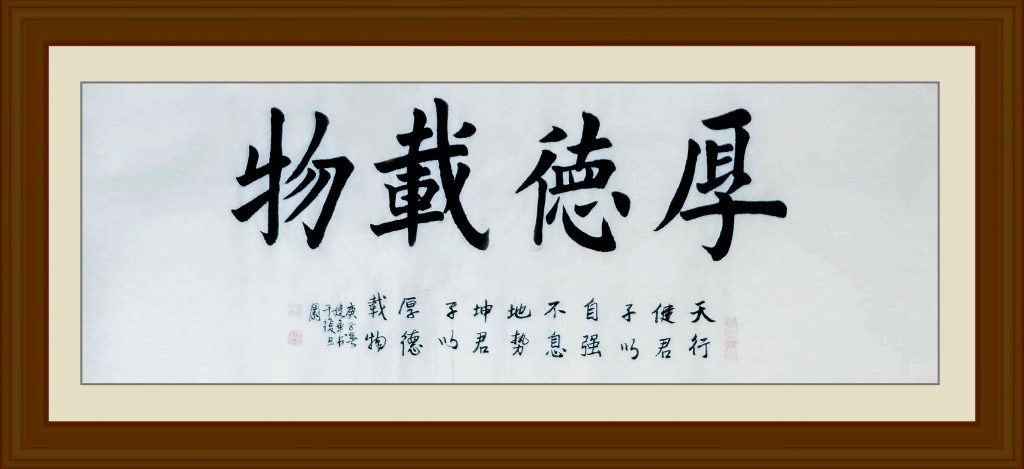 厚德載物
天行
健君
子以
自强
不息
地势
坤君
子以
厚德
载物